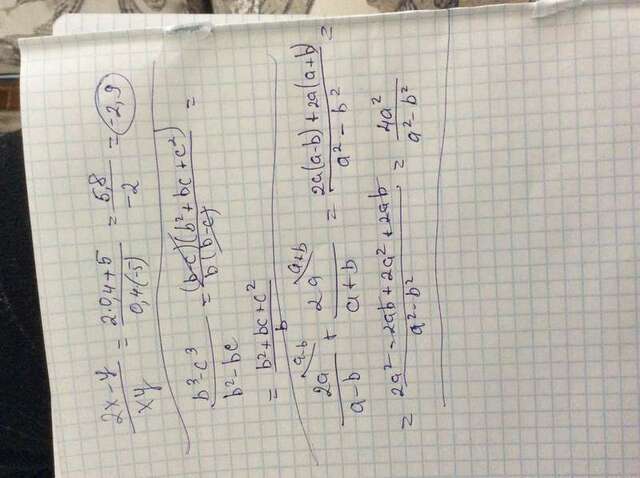 (2x-y)/(xy) = (2·0,4+5)/(0,4·(-5)) = 5,8/(-2) = -2,9
(b³-c³)/(b²-bc) = ((b-c)(b²+bc+c²))/(b(b-c)) =
= (b²+bc+c²)/b
2a/(a-b) \a-b + 2a/(a+b) \a+b = (2a(a-b)+2a(a+b))/(a²-b²) =
= (2a²-2ab+2a²+2ab)/(a²-b²) = 4a²/(a²-b²)